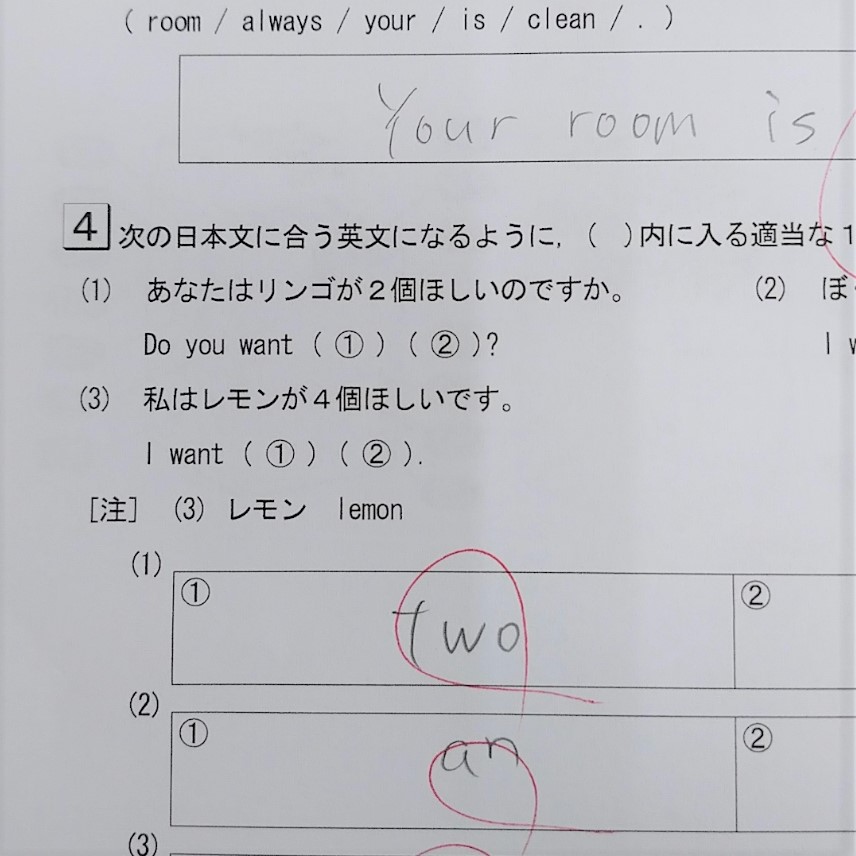 ( room / always / your / is / clean / . )
Your room is
4 次の日本文に合う英文になるように, (　)内に入る適当な1
(1) あなたはリンゴが2個ほしいのですか。 (2) ぼ
Do you want ( ① ) ( ② )? I
(3) 私はレモンが4個ほしいです。
I want ( ① ) ( ② ).
[注] (3) レモン lemon
(1)
① two ②
(2)
① an ②
(3)